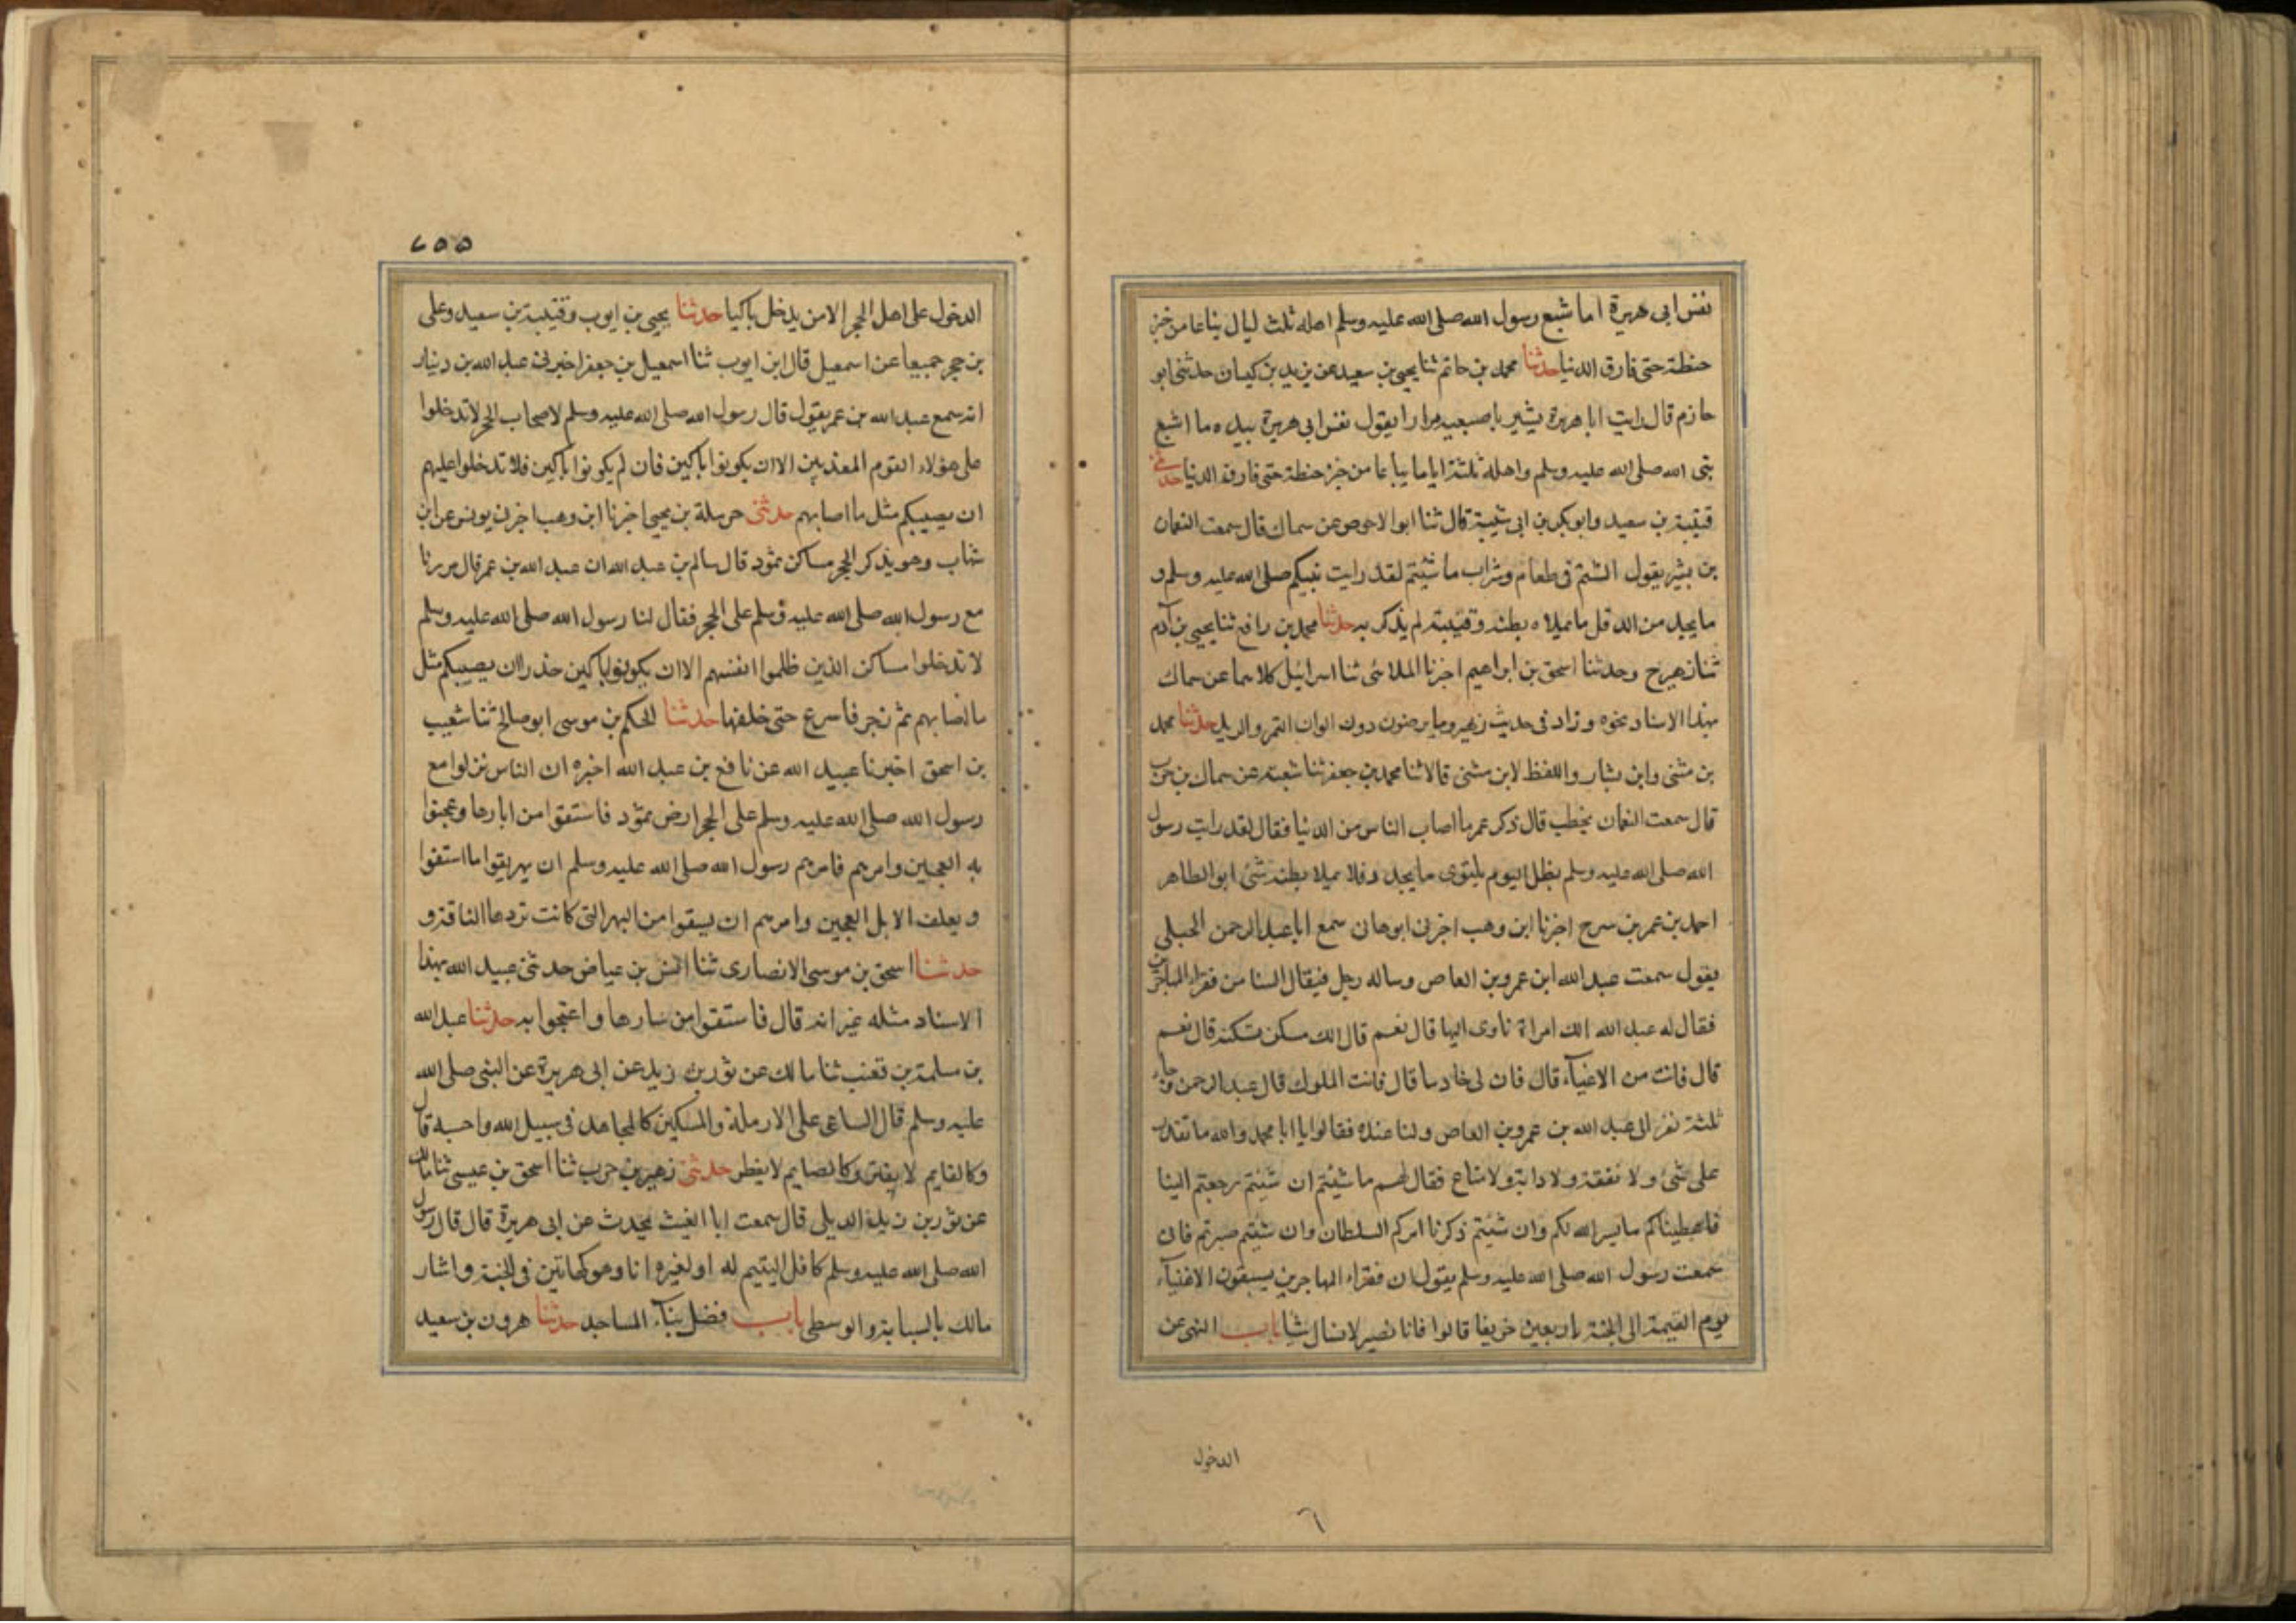 نفس ابى هريرة اما شبع رسول الله صلى الله عليه وسلم اهله ثلث ليال تباعا من خبز
حنطة حتى فارق الدنيا حدثنا محمد بن حاتم ثنا يحيى بن سعيد عن يزيد بن كيسان حدثنى ابو
حازم قال رايت ابا هريرة يشير باصبعيه مرارا يقول نفس ابى هريرة بيده ما اشبع
نبى الله صلى الله عليه وسلم واهله ثلثة اياما تباعا من خبز حنطة حتى فارق الدنيا حدثنى
قتيبة بن سعيد وابو بكر بن ابى شيبة قال ثنا ابو الاحوص عن سماك قال سمعت النعمان
بن بشير يقول الستم فى طعام وشراب ما شئتم لقد رايت نبيكم صلى الله عليه وسلم و
ما يجد من الدقل ما يملاه بطنه وقتيبة لم يذكر به حدثنا محمد بن رافع ثنا يحيى بن آدم
ثنا زهير ح وحدثنا اسحق بن ابراهيم اخبرنا الملائى ثنا اسرائيل كلاهما عن سماك
بهذا الاسناد نحوه وزاد فى حديث زهير وما يرضون دون الوان التمر والزبد حدثنا محمد
بن مثنى وابن بشار واللفظ لابن مثنى قالا ثنا محمد بن جعفر ثنا شعبة عن سماك بن حرب
قال سمعت النعمان يخطب قال ذكر عمر ما اصاب الناس من الدنيا فقال لقد رايت رسول
الله صلى الله عليه وسلم يظل اليوم يلتوى ما يجد دقلا يملا بطنه شئ ابو الطاهر
احمد بن عمر بن سرح اخبرنا ابن وهب اخبرنى ابو هان سمع ابا عبد الرحمن الحبلى
يقول سمعت عبد الله ابن عمرو بن العاص وساله رجل فيقال السنا من فقراء المهاجرين
فقال له عبد الله الك امراة تاوى اليها قال نعم قال الك مسكن تسكنه قال نعم
قال فانت من الاغنيآء قال فان لى خادما قال فانت الملوك قال عبد الرحمن وجاء
ثلثة نفر الى عبد الله بن عمرو بن العاص ولنا عنده فقالوا يا ابا محمد والله ما نقدر
على شئ ولا نفقة ولا دابة ولا متاع فقال لهم ما شئتم ان شئتم رجعتم الينا
فاعطيناكم ما يسر الله لكم وان شئتم ذكرنا امركم السلطان وان شئتم صبرتم فانى
سمعت رسول الله صلى الله عليه وسلم يقول ان فقراء المهاجرين يسبقون الاغنيآء
يوم القيمة الى الجنة باربعين خريفا قالوا فانا نصبر لا نسال شيا باب النهى عن
الدخول
٦
٢٥٥
الدخول على اهل الحجر الا من يدخل باكيا حدثنا يحيى بن ايوب وقتيبة بن سعيد وعلى
بن حجر جميعا عن اسمعيل قال ابن ايوب ثنا اسمعيل بن جعفر اخبرنى عبد الله بن دينار
انه سمع عبد الله بن عمر يقول قال رسول الله صلى الله عليه وسلم لاصحاب الحجر لا تدخلوا
على هؤلاء القوم المعذبين الا ان يكونوا باكين فان لم يكونوا باكين فلا تدخلوا عليهم
ان يصيبكم مثل ما اصابهم حدثنى حرملة بن يحيى اخبرنا ابن وهب اخبرنى يونس عن ابن
شهاب وهو يذكر الحجر مساكن ثمود قال سالم بن عبد الله ان عبد الله بن عمر قال مررنا
مع رسول الله صلى الله عليه وسلم على الحجر فقال لنا رسول الله صلى الله عليه وسلم
لا تدخلوا مساكن الذين ظلموا انفسهم الا ان يكونوا باكين حذرا ان يصيبكم مثل
ما اصابهم ثم زجر فاسرع حتى خلفها حدثنا الحكم بن موسى ابو صالح ثنا شعيب
بن اسحق اخبرنا عبيد الله عن نافع بن عبد الله اخبره ان الناس نزلوا مع
رسول الله صلى الله عليه وسلم على الحجر ارض ثمود فاستقوا من ابارها وعجنوا
به العجين وامرهم فامرهم رسول الله صلى الله عليه وسلم ان يهريقوا ما استقوا
ويعلف الابل العجين وامرهم ان يسقوا من البهر التى كانت تردها الناقة و
حدثنا اسحق بن موسى الانصارى ثنا انس بن عياض حدثنى عبيد الله بهذا
الاسناد مثله غير انه قال فاستقوا من بيارها واعتجنوا به حدثنا عبد الله
بن مسلمة بن قعنب ثنا مالك عن ثور بن زيد عن ابى هريرة عن النبى صلى الله
عليه وسلم قال الساعى على الارملة والمسكين كالمجاهد فى سبيل الله واحسبه قال
وكالقايم لا يفتر وكالصايم لا يفطر حدثنى زهير بن حرب ثنا اسحق بن عيسى ثنا مالك
عن ثور بن زيد الديلى قال سمعت ابا الغيث يحدث عن ابى هريرة قال قال رسول
الله صلى الله عليه وسلم كافل اليتيم له او لغيره انا وهو كهاتين فى الجنة واشار
مالك بالسبابة والوسطى باب فضل بنآء المساجد حدثنا هرون بن سعيد